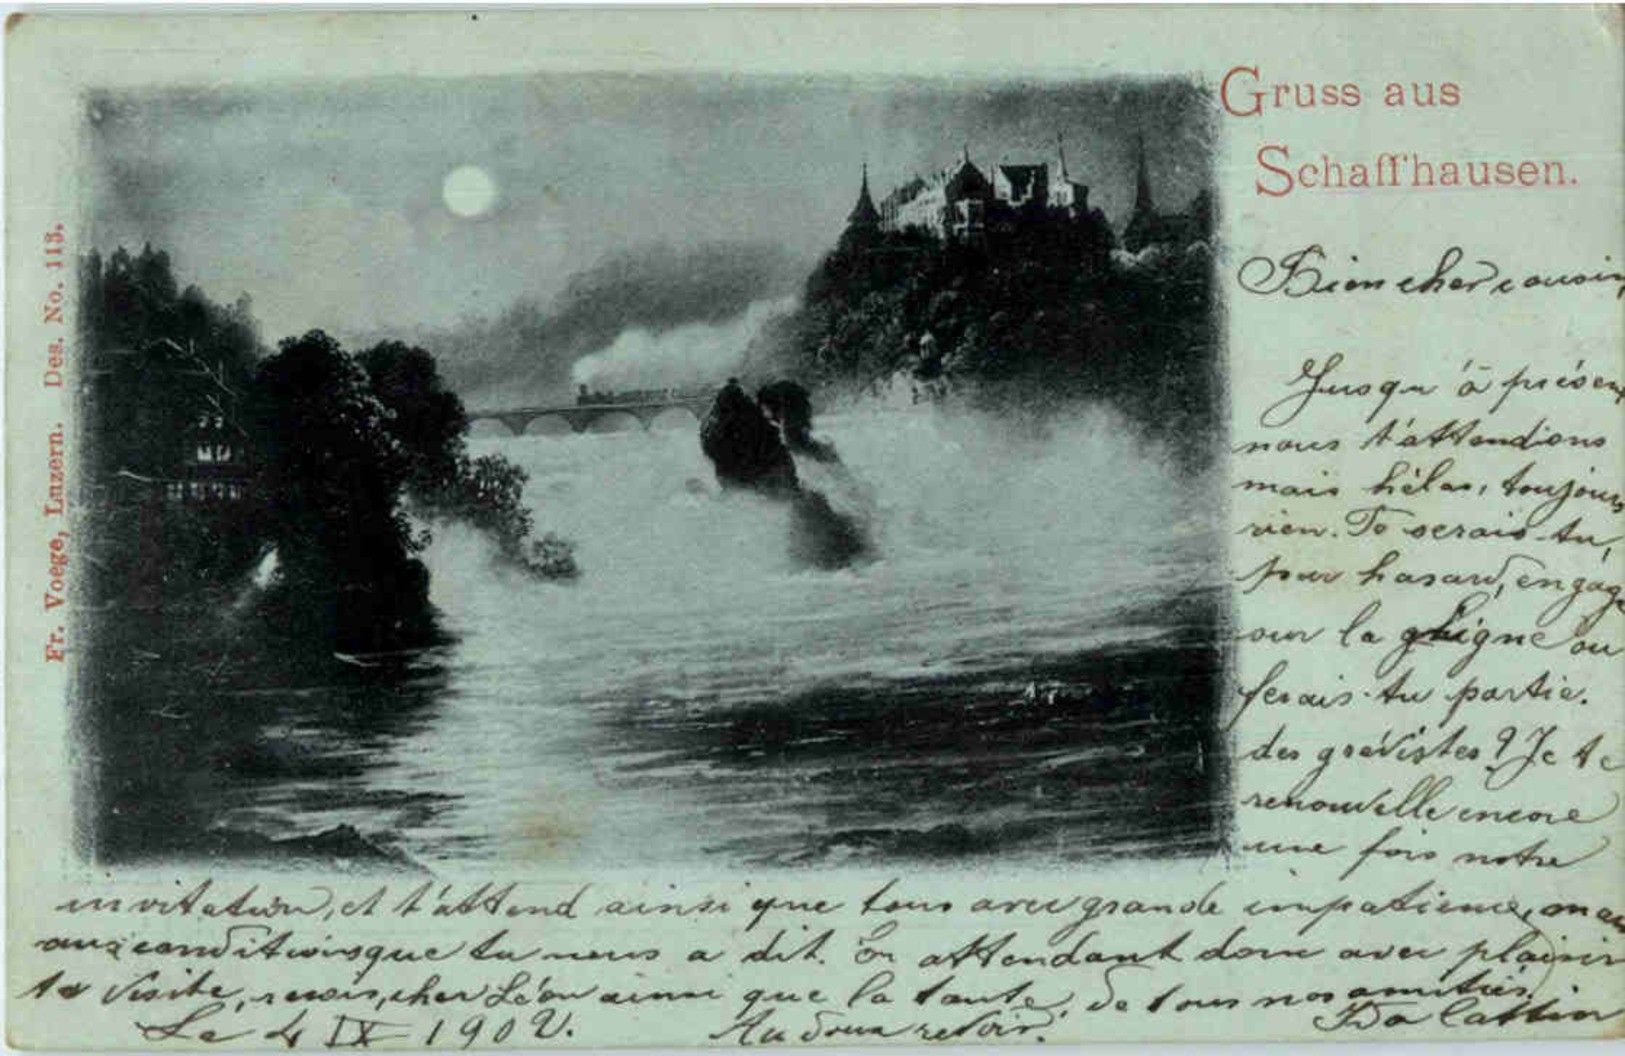 Gruss aus
Schaffhausen.
Fr. Voege, Luzern. Des. No. 113.
Bien cher cousin,
Jusqu'à présent
nous t'attendions
mais hélas, toujours
rien. Te serais-tu,
par hasard, engagé
sur la ligne ou
ferais-tu partie
des grévistes? Je te
renouvelle encore
une fois notre
invitation, et t'attend ainsi que tous avec grande impatience, mais
aux conditions que tu nous a dit. En attendant donc avec plaisir
ta visite, reçois, cher Léon ainsi que la tante, de tous nos amitiés.
Le 4 IX 1902. Au doux revoir. Ida